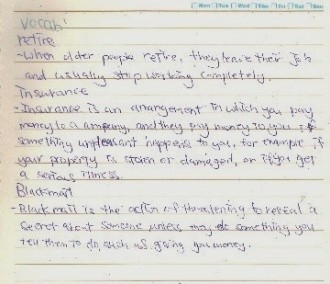 Mon Tue Wed Thu Fri Sat Sun
Vocab'
retire
-When older people retire, they leave their job
and usually stop working completely.
Insurance
-Insurance is an arrangement in which you pay
money to a company, and they pay money to you if
something unpleasant happens to you, for example if
your property is stolen or damaged, or if you get
a serious illness.
Blackmail
-Blackmail is the action of threatening to reveal a
secret about someone unless they do something you
tell them to do, such as giving you money.